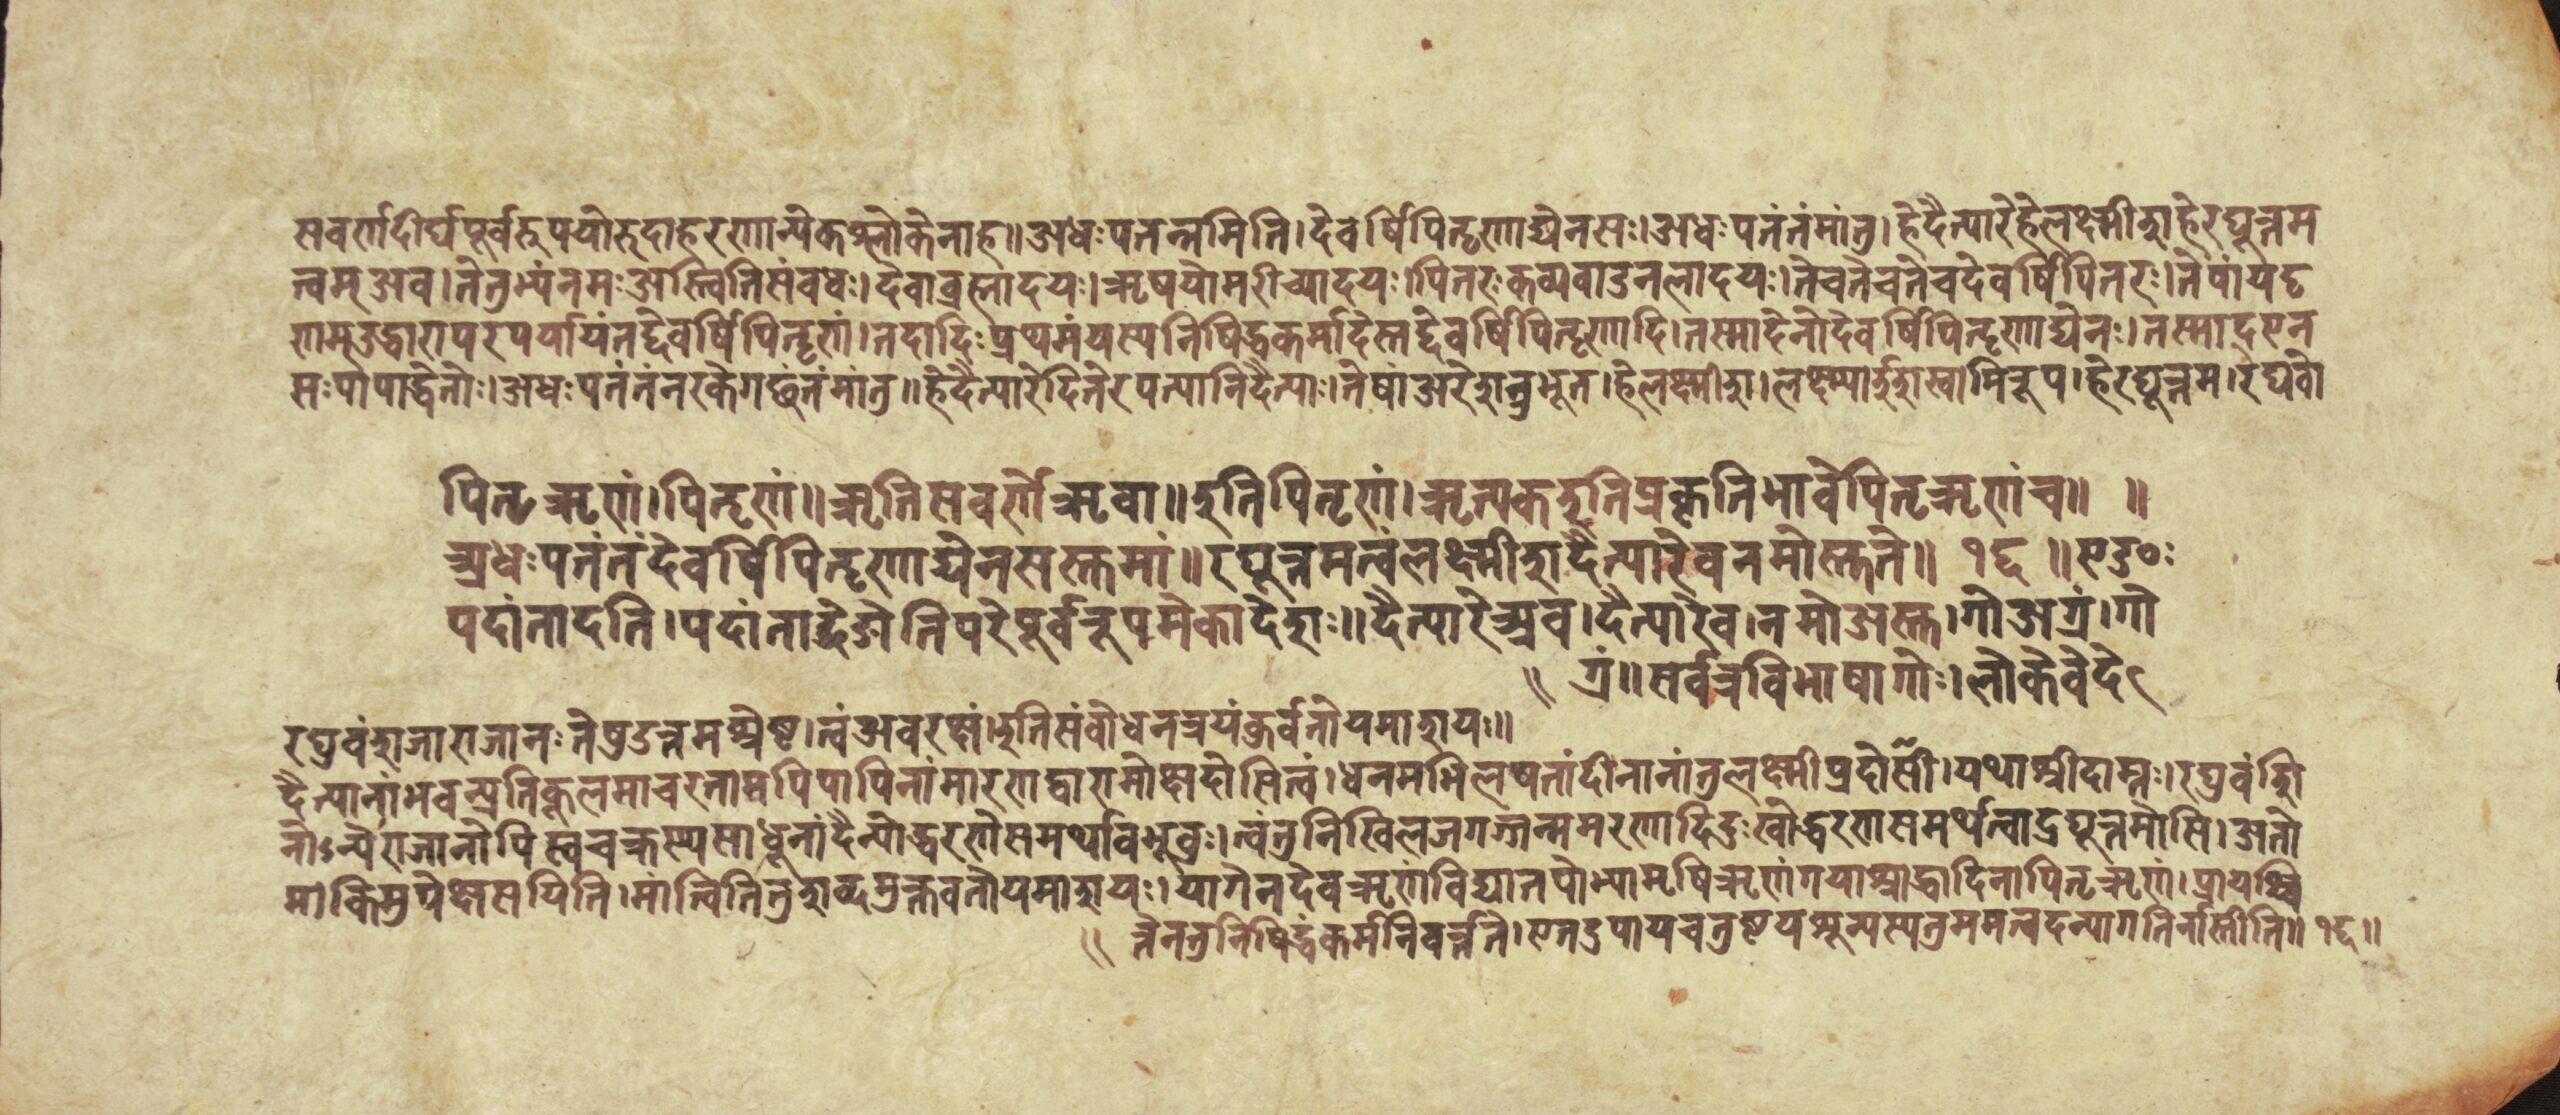 सवर्णदीर्घपूर्वरूपयोरुदाहरणान्येकश्लोकेनाह॥अधःपतन्तमिति।देवर्षिपितॄणाद्येनसः।अधःपतंतंमांतु।हेदैत्यारेहेलक्ष्मीशहेरघूत्तम
त्वम्अव।तेतुभ्यंनमःअस्त्वितिसंबंधः।देवाब्रह्मादयः।ऋषयोमरीच्यादयः।पितरःकव्यवाडनलादयः।तेचतेचतेचदेवर्षिपितरः।तेषांयदृ
णम्उद्धारापरपर्यायंतद्देवर्षिपितॄणं।तदादिःप्रथमंयस्यनिषिद्धकर्मादेस्तद्देवर्षिपितॄणादि।तस्मादेनोदेवर्षिपितॄणाद्येनः।तस्माद्एन
सःपापाद्धेतोः।अधःपतंतंनरकेगछंतंमांतु॥हेदैत्यारेदितेरपत्यानिदैत्याः।तेषांअरेशत्रुभूत।हेलक्ष्मीश।लक्ष्म्याईशस्वामिरूप।हेरघूत्तम।रघवो
पितृऋणं।पितॄणं॥ऋतिसवर्णेऋवा॥इतिपितृणं।ऋत्यकइतिप्रकृतिभावेपितृऋणंच॥ ॥
अधःपतंतंदेवर्षिपितॄणाद्येनसस्तुमां॥रघूत्तमत्वंलक्ष्मीशदैत्यारेवनमोस्तुते॥ १६ ॥एङः
पदांतादति।पदांतादेङोतिपरेपूर्वरूपमेकादेशः॥दैत्यारेअव।दैत्यारेव।नमोअस्तु।गोअग्रं।गो
ग्रं॥सर्वत्रविभाषागोः।लोकेवेदे
रघुवंशजाराजानःतेषुउत्तमश्रेष्ठ।त्वंअवरक्ष।इतिसंबोधनत्रयंकुर्वतोयमाशयः॥
दैत्यानांभवत्प्रतिकूलमाचरतामपिपापिनांमारणद्वारामोक्षदोसित्वं।धनमभिलषतांदीनानांतुलक्ष्मीप्रदोसी।यथाश्रीदाम्नः।रघुवंशि
नोऽन्येराजानोपिस्वचक्रस्यसाधूनांदैन्योद्धरणेसमर्थाबभूवुः।त्वंतुनिखिलजगज्जन्ममरणादिदुःखोद्धरणसमर्थत्वाद्रघूत्तमोसि।अतो
मांकिमुपेक्षसयिति।मांत्वितितुशब्दमुक्तवतोयमाशयः।यागेनदेवऋणंविद्यातपोभ्यामृषिऋणंगयाश्राद्धादिनापितृऋणं।प्रायश्चि
त्तेनतुनिषिद्धंकर्मनिवर्त्तते।एतदुपायचतुष्टयशून्यस्यतुममत्वदन्यागतिर्नास्तीति॥१६॥